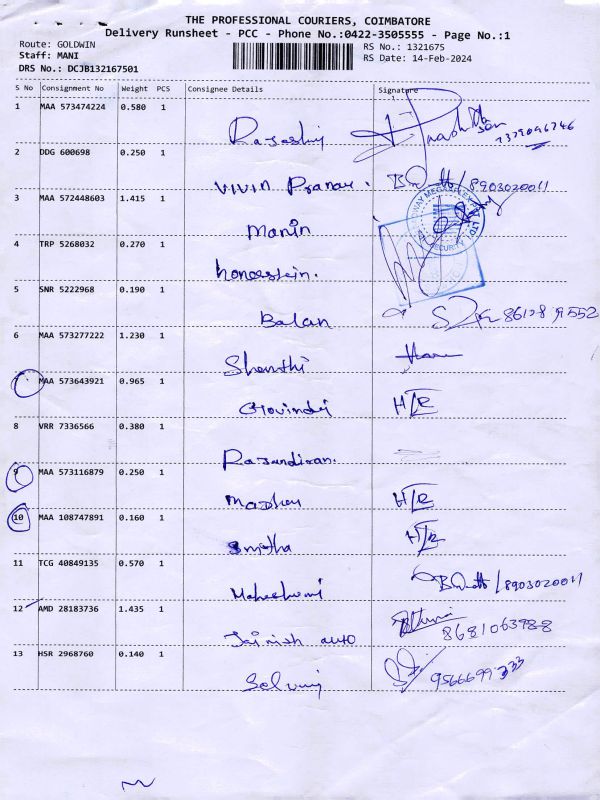 THE PROFESSIONAL COURIERS, COIMBATORE
Delivery Runsheet - PCC - Phone No.:0422-3505555 - Page No.:1
Route: GOLDWIN
RS No.: 1321675
Staff: MANI
RS Date: 14-Feb-2024
DRS No.: DCJB132167501
S No Consignment No Weight PCS Consignee Details Signature
1 MAA 573474224 0.580 1
Rajashij
7339096746
2 DDG 600698 0.250 1
Vivin Pranav. 8903020011
3 MAA 572448603 1.415 1
Manin
4 TRP 5268032 0.270 1
SECURITY
5 SNR 5222968 0.190 1
Balan
6 MAA 573277222 1.230 1
Shanthi
7 MAA 573643921 0.965 1
Govindij H/R
8 VRR 7336566 0.380 1
Rajandiran.
9 MAA 573116879 0.250 1
Madhu H/R
10 MAA 108747891 0.160 1
Smitha H/R
11 TCG 40849135 0.570 1
Maheshwari 8903020011
12 AMD 28183736 1.435 1
Jainish auto 8681063988
13 HSR 2968760 0.140 1
Selvarij 9566699333